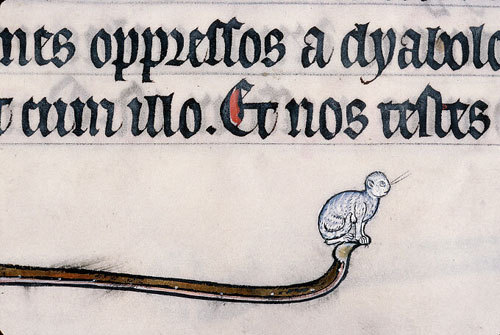 nes oppressos a dyabolo
t cum illo. Et nos testes